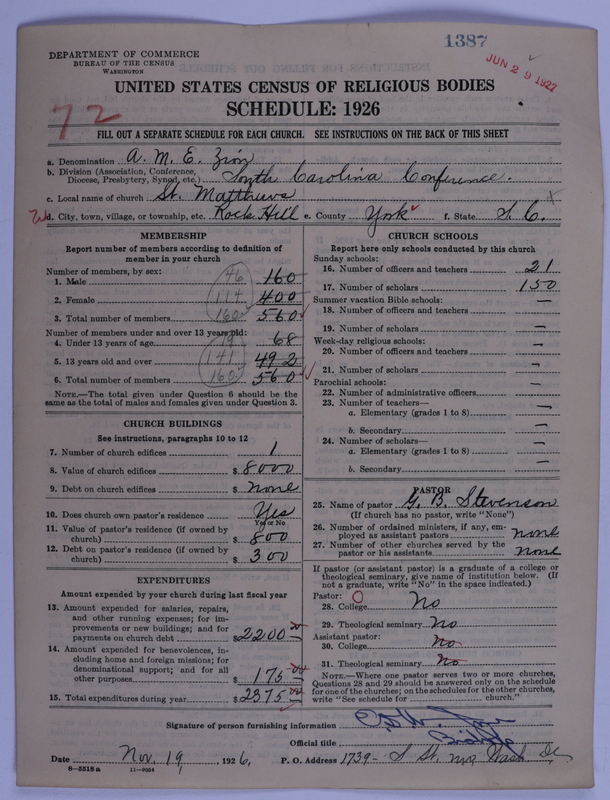 1387
JUN 29 1927
DEPARTMENT OF COMMERCE
BUREAU OF THE CENSUS
WASHINGTON
UNITED STATES CENSUS OF RELIGIOUS BODIES
SCHEDULE: 1926
72
FILL OUT A SEPARATE SCHEDULE FOR EACH CHURCH. SEE INSTRUCTIONS ON THE BACK OF THIS SHEET
a. Denomination A. M. E. Zion
b. Division (Association, Conference, Diocese, Presbytery, Synod, etc.) South Carolina Conference.
c. Local name of church St. Matthews
d. City, town, village, or township, etc. Rock Hill e. County York f. State S. C.
MEMBERSHIP
Report number of members according to definition of member in your church
Number of members, by sex:
1. Male 46 160
2. Female 114 400
3. Total number of members 160 560
Number of members under and over 13 years old:
4. Under 13 years of age 19 68
5. 13 years old and over 141 492
6. Total number of members 160 560
NOTE.—The total given under Question 6 should be the same as the total of males and females given under Question 3.
CHURCH BUILDINGS
See instructions, paragraphs 10 to 12
7. Number of church edifices 1
8. Value of church edifices $ 8000
9. Debt on church edifices $ none
10. Does church own pastor's residence? Yes
Yes or No
11. Value of pastor's residence (if owned by church) $ 800
12. Debt on pastor's residence (if owned by church) $ 300
EXPENDITURES
Amount expended by your church during last fiscal year
13. Amount expended for salaries, repairs, and other running expenses; for improvements or new buildings; and for payments on church debt $ 2200
14. Amount expended for benevolences, including home and foreign missions; for denominational support; and for all other purposes $ 175
15. Total expenditures during year $ 2375
CHURCH SCHOOLS
Report here only schools conducted by this church
Sunday schools:
16. Number of officers and teachers 21
17. Number of scholars 150
Summer vacation Bible schools:
18. Number of officers and teachers —
19. Number of scholars —
Week-day religious schools:
20. Number of officers and teachers —
21. Number of scholars —
Parochial schools:
22. Number of administrative officers —
23. Number of teachers—
a. Elementary (grades 1 to 8) —
b. Secondary —
24. Number of scholars—
a. Elementary (grades 1 to 8) —
b. Secondary —
PASTOR
25. Name of pastor G. B. Stevenson
(If church has no pastor, write "None")
26. Number of ordained ministers, if any, employed as assistant pastors none
27. Number of other churches served by the pastor or his assistants none
If pastor (or assistant pastor) is a graduate of a college or theological seminary, give name of institution below. (If not a graduate, write "No" in the space indicated.)
Pastor:
28. College No
29. Theological seminary No
Assistant pastor:
30. College No
31. Theological seminary No
NOTE.—Where one pastor serves two or more churches, Questions 28 and 29 should be answered only on the schedule for one of the churches; on the schedules for the other churches, write "See schedule for church."
Signature of person furnishing information
Official title Bishop
Date Nov. 19, 1926, P. O. Address 1739- S St. N.W. Wash DC
8—5518a 11—9054